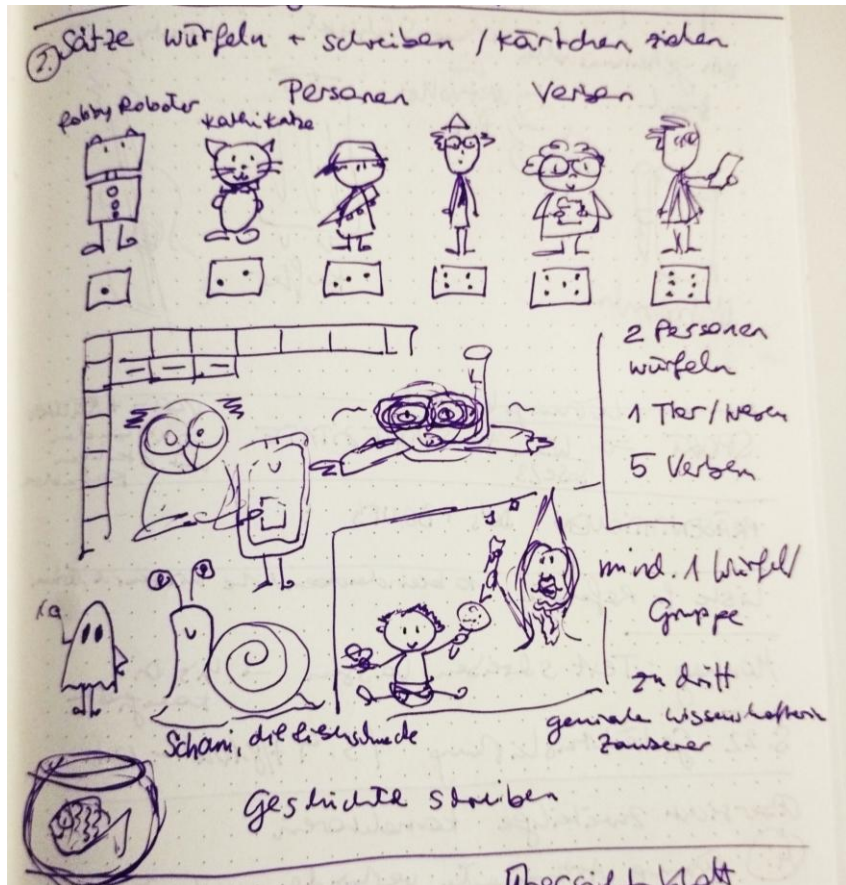 2. Sätze würfeln + schreiben / Kärtchen ziehen
Personen Verben
Robby Roboter
Kathi Katze
2 Personen
würfeln
1 Tier/Wesen
5 Verben
mind. 1 Würfel/
Gruppe
zu dritt
geniale Wissenschaftlerin
Zauberer
Schani, die
Geschichte schreiben